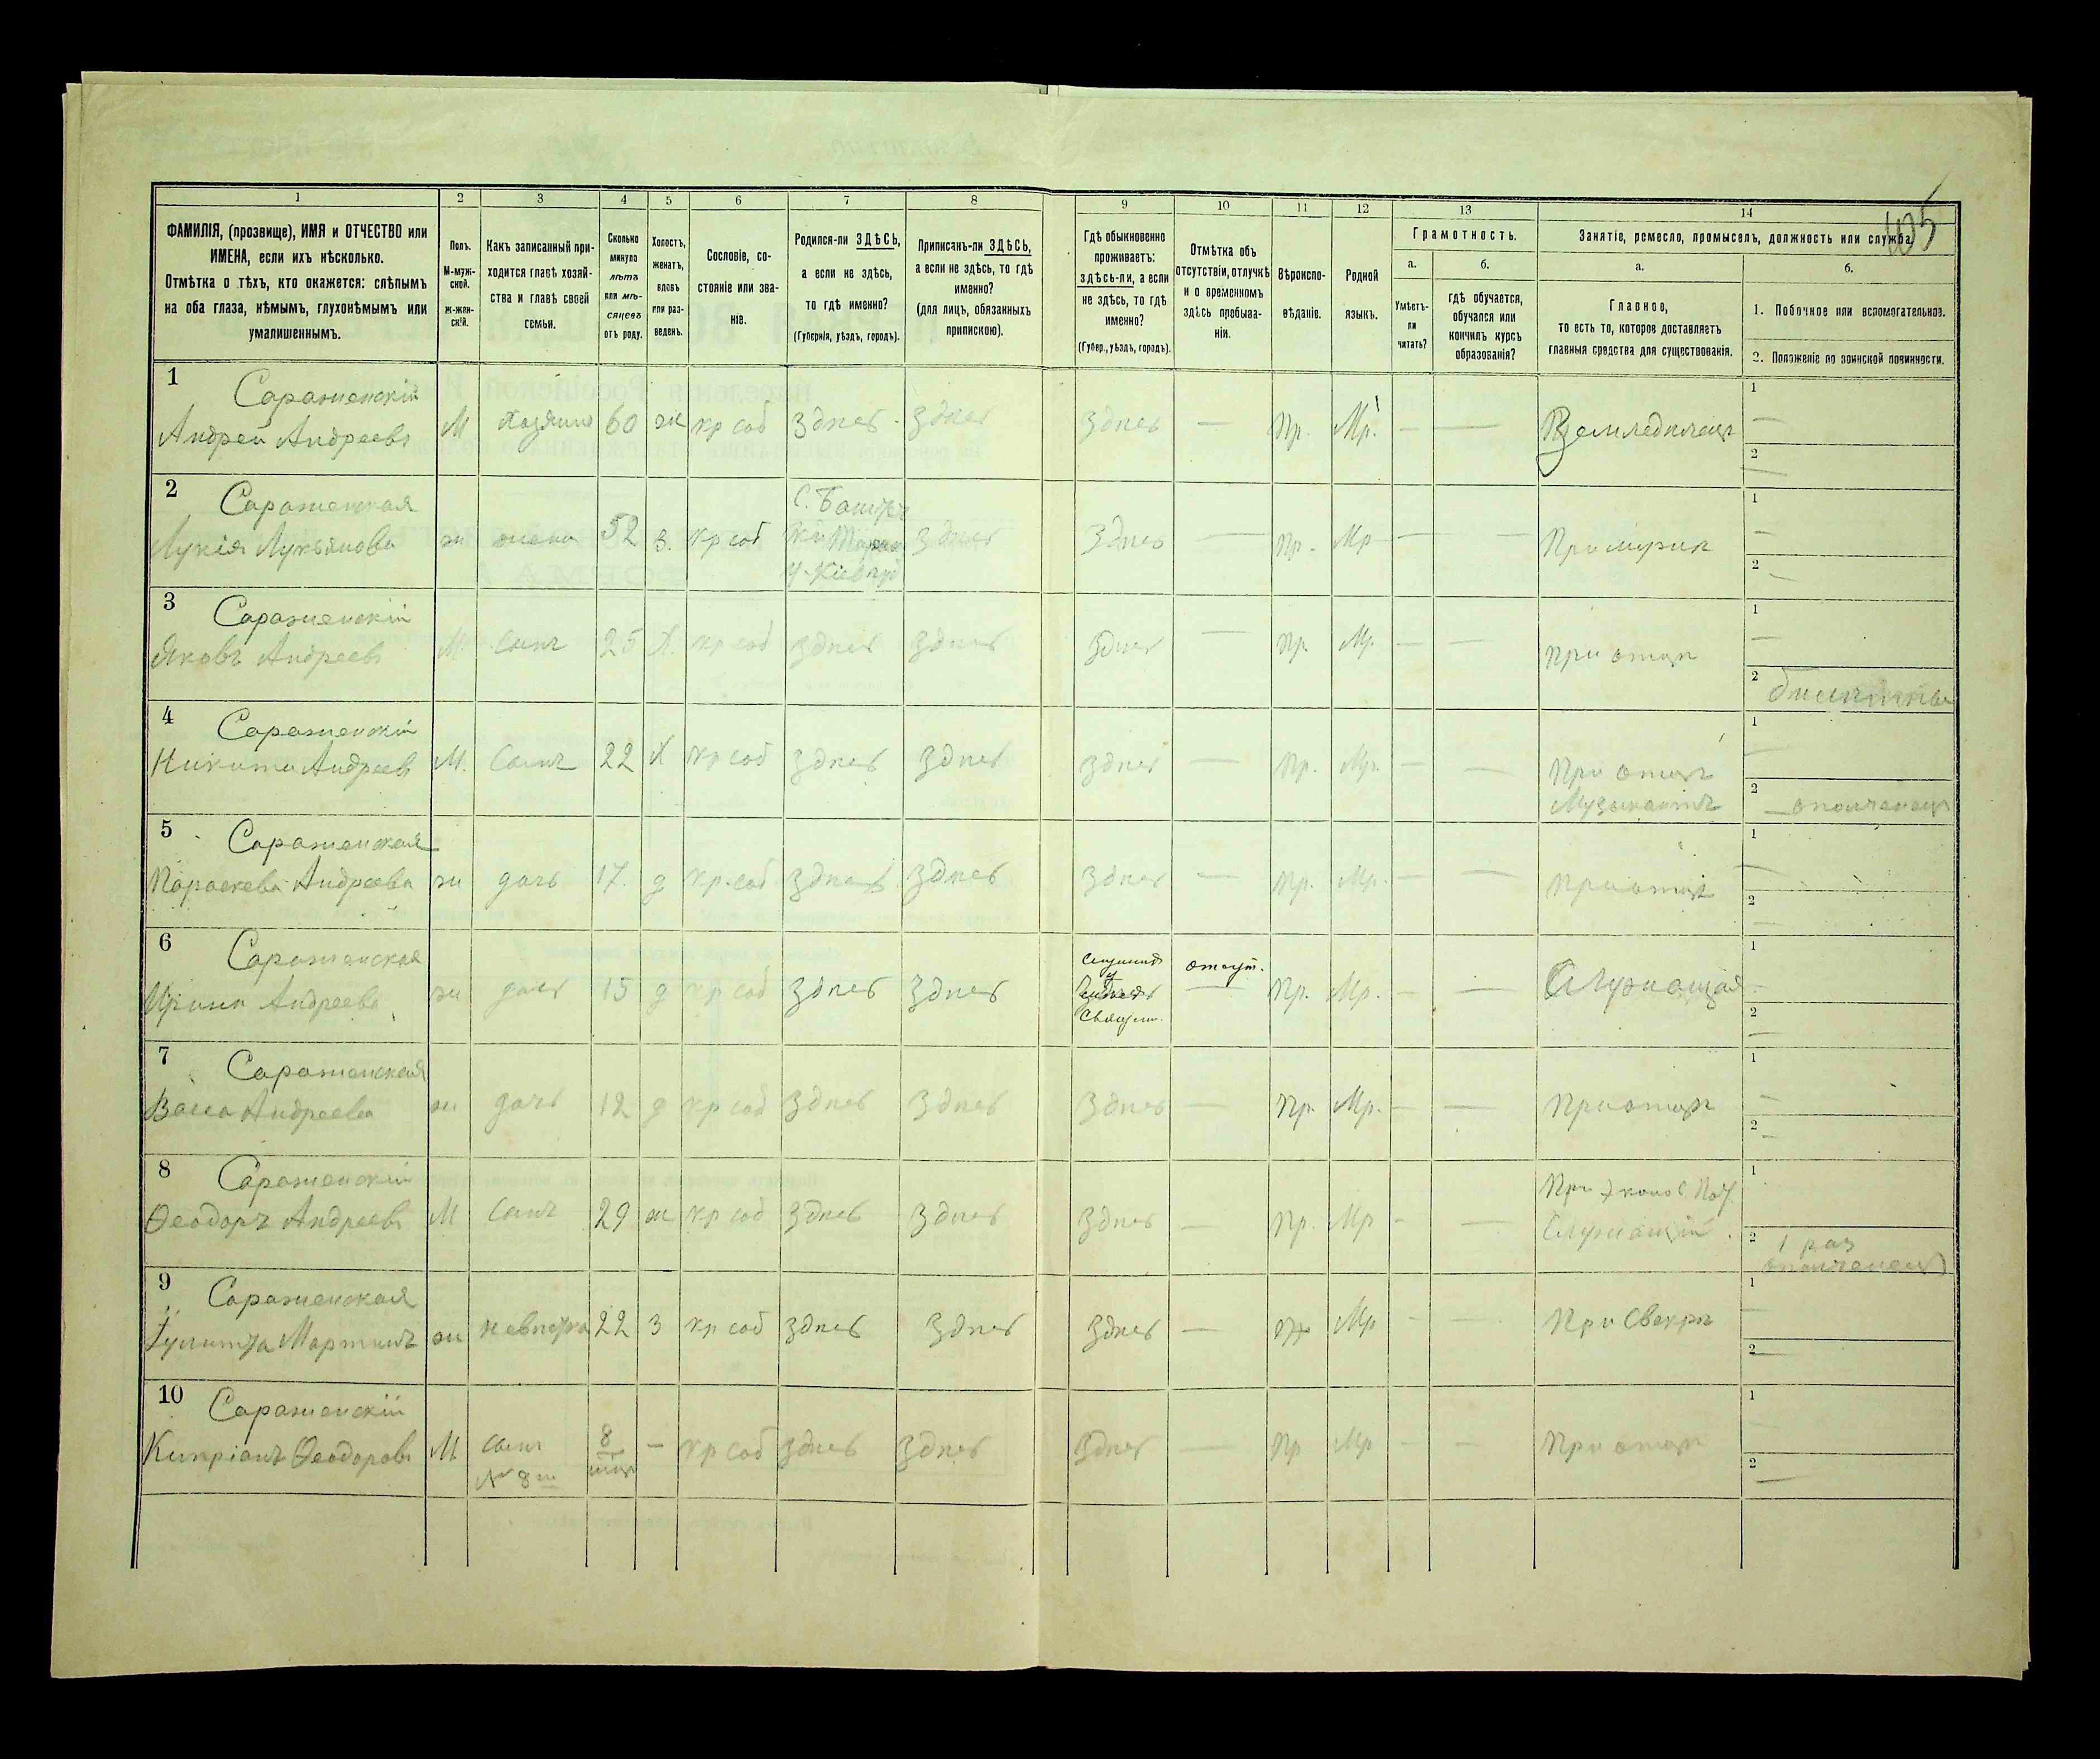 105
1 2 3 4 5 6 7 8 9 10 11 12 13 14
ФАМИЛІЯ, (прозвище), ИМЯ и ОТЧЕСТВО или
ИМЕНА, если ихъ нѣсколько.
Отмѣтка о тѣхъ, кто окажется: слѣпымъ
на оба глаза, нѣмымъ, глухонѣмымъ или
умалишеннымъ.
Полъ.
М-муж-
ской.
ж-жен-
скій.
Какъ записанный при-
ходится главѣ хозяй-
ства и главѣ своей
семьи.
Сколько
минуло
лѣтъ
или мѣ-
сяцевъ
отъ роду.
Холостъ,
женатъ,
вдовъ
или раз-
веденъ.
Сословіе, со-
стояніе или зва-
ніе.
Родился-ли ЗДѢСЬ,
а если не здѣсь,
то гдѣ именно?
(Губернія, уѣздъ, городъ).
Приписанъ-ли ЗДѢСЬ,
а если не здѣсь, то гдѣ
именно?
(для лицъ, обязанныхъ
припискою).
Гдѣ обыкновенно
проживаетъ:
здѣсь-ли, а если
не здѣсь, то гдѣ
именно?
(Губер., уѣздъ, городъ).
Отмѣтка объ
отсутствіи, отлучкѣ
и о временномъ
здѣсь пребыва-
ніи.
Вѣроиспо-
вѣданіе.
Родной
языкъ.
Грамотность.
а.
Умѣетъ-
ли
читать?
б.
гдѣ обучается,
обучался или
кончилъ курсъ
образованія?
Занятіе, ремесло, промыселъ, должность или служба.
а.
Главное,
то есть то, которое доставляетъ
главныя средства для существованія.
б.
1. Побочное или вспомогательное.
2. Положеніе по воинской повинности.
1 Сараженскій
Андрей Андреевъ М хозяинъ 60 ж кр соб здѣсь здѣсь здѣсь — Пр. Мр. — — Земледѣлецъ
1 —
2 —
2 Сараженская
Лукія Лукьянова ж жена 52 з. кр соб
У. Кіев губ
здѣсь здѣсь — Пр. Мр — — При мужѣ
1 —
2 —
3 Сараженскій
Яковъ Андреевъ М. сынъ 25 х. кр соб здѣсь здѣсь здѣсь — Пр. Мр. — — При отцѣ
1 —
2
4 Сараженскій
Никита Андреевъ М. сынъ 22 х кр соб здѣсь здѣсь здѣсь — Пр. Мр. — — При отцѣ
Музыкантъ
1 —
2 ополченецъ
5 Сараженская
Параскева Андреева ж дочь 17. д кр. соб здѣсь здѣсь здѣсь — Пр. Мр. — — При отцѣ
1 —
2 —
6 Сараженская
Ирина Андреева ж дочь 15 д кр соб здѣсь здѣсь
у
Священ.
отсут. Пр. Мр. — — Служащая
1 —
2 —
7 Сараженская
Васса Андреева ж дочь 12 д кр соб здѣсь здѣсь здѣсь — Пр. Мр. — — При отцѣ
1 —
2 —
8 Сараженскій
Ѳеодоръ Андреевъ М сынъ 29 ж кр соб здѣсь здѣсь здѣсь — Пр. Мр — —
Служащій.
1
2 1 раз
ополченецъ
9 Сараженская
Іулитта Мартин ж невѣстка 22 з кр соб здѣсь здѣсь здѣсь — Пр Мр — — При Свекрѣ
1 —
2 —
10 Сараженскій
Кипріанъ Ѳеодоровъ М сынъ 8 — кр соб здѣсь здѣсь здѣсь — Пр Мр — — При отцѣ
№ 8 мѣсяц
1
2 —